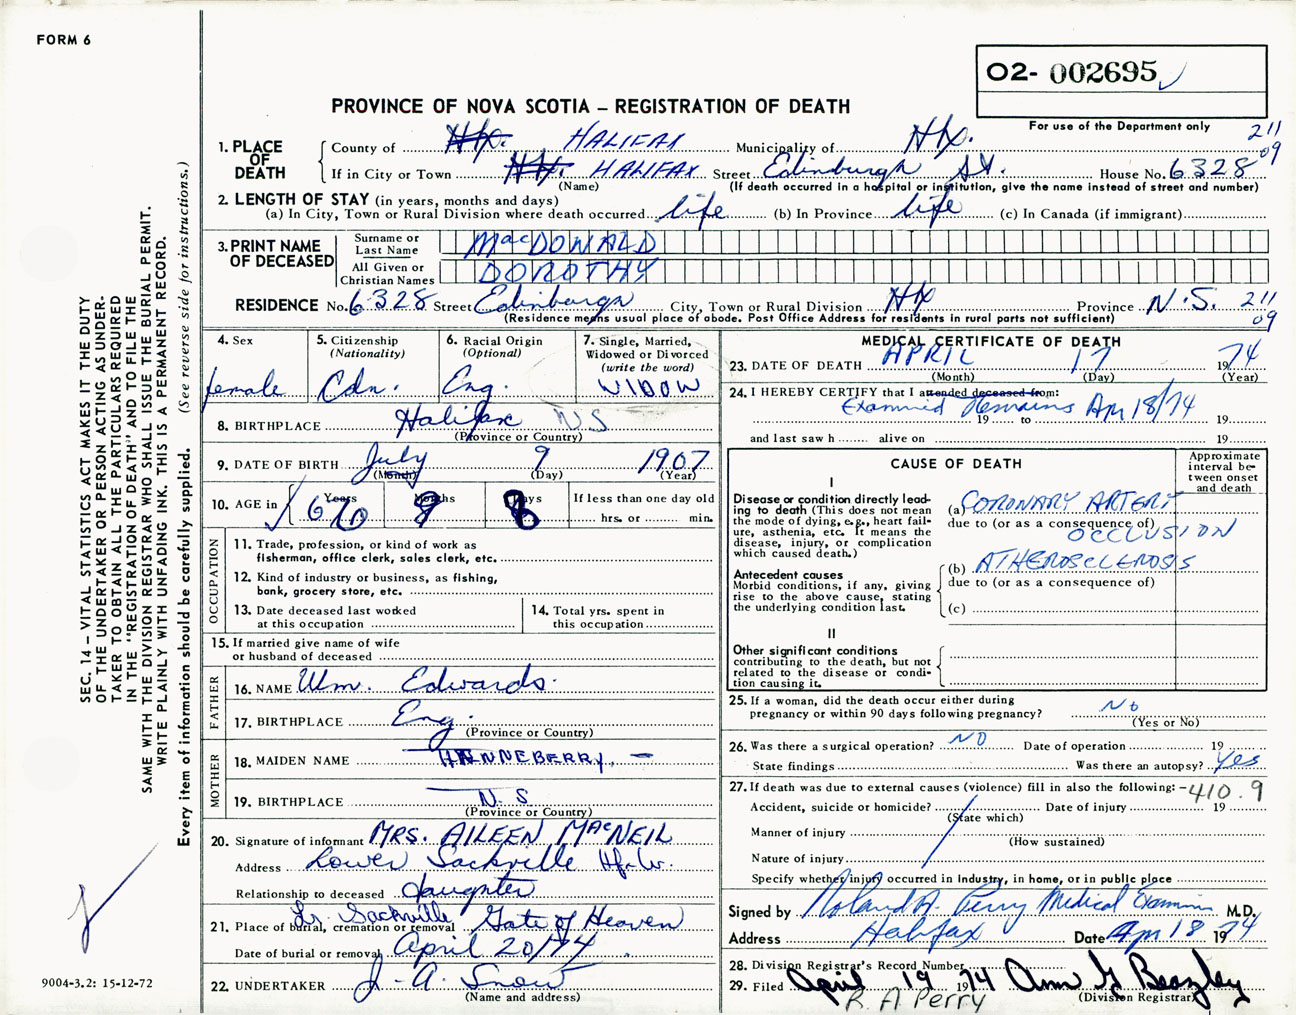 FORM 6
O2- 002695
PROVINCE OF NOVA SCOTIA – REGISTRATION OF DEATH
For use of the Department only
211
09
1. PLACE OF DEATH
County of Hfx. HALIFAX Municipality of Hfx.
If in City or Town Hfx. HALIFAX Street Edinburgh St. House No. 6328
(Name) (If death occurred in a hospital or institution, give the name instead of street and number)
2. LENGTH OF STAY (in years, months and days)
(a) In City, Town or Rural Division where death occurred life (b) In Province life (c) In Canada (if immigrant)
3. PRINT NAME OF DECEASED
Surname or Last Name MacDONALD
All Given or Christian Names DOROTHY
RESIDENCE No. 6328 Street Edinburgh City, Town or Rural Division Hfx Province N.S. 211
09
(Residence means usual place of abode. Post Office Address for residents in rural parts not sufficient)
4. Sex
female
5. Citizenship
(Nationality)
Cdn.
6. Racial Origin
(Optional)
Eng.
7. Single, Married,
Widowed or Divorced
(write the word)
WIDOW
8. BIRTHPLACE Halifax N S
(Province or Country)
9. DATE OF BIRTH July 9 1907
(Month) (Day) (Year)
10. AGE in Years Months Days If less than one day old
66 9 8 hrs. or min.
OCCUPATION
11. Trade, profession, or kind of work as
fisherman, office clerk, sales clerk, etc.
12. Kind of industry or business, as fishing,
bank, grocery store, etc.
13. Date deceased last worked
at this occupation
14. Total yrs. spent in
this occupation
15. If married give name of wife
or husband of deceased
FATHER
16. NAME Wm. Edwards.
17. BIRTHPLACE Eng.
(Province or Country)
MOTHER
18. MAIDEN NAME HENNEBERRY. –
19. BIRTHPLACE N. S
(Province or Country)
20. Signature of informant MRS. AILEEN MacNEIL
Address Lower Sackville Hfx.
Relationship to deceased daughter
21. Place of burial, cremation or removal Lr. Sackville Gate of Heaven
Date of burial or removal April 20/74
22. UNDERTAKER J. A. Snow
(Name and address)
MEDICAL CERTIFICATE OF DEATH
23. DATE OF DEATH APRIL 17 1974
(Month) (Day) (Year)
24. I HEREBY CERTIFY that I attended deceased from:
Examined Remains Apr 18/74
19 to 19
and last saw h alive on 19
CAUSE OF DEATH
Approximate interval between onset and death
I
Disease or condition directly leading to death (This does not mean the mode of dying, e.g., heart failure, asthenia, etc. It means the disease, injury, or complication which caused death.)
(a) CORONARY ARTERY
due to (or as a consequence of)
OCCLUSION
Antecedent causes
Morbid conditions, if any, giving rise to the above cause, stating the underlying condition last.
(b) ATHEROSCLEROSIS
due to (or as a consequence of)
(c)
II
Other significant conditions
contributing to the death, but not related to the disease or condition causing it.
25. If a woman, did the death occur either during
pregnancy or within 90 days following pregnancy? No
(Yes or No)
26. Was there a surgical operation? NO Date of operation 19
State findings Was there an autopsy? Yes
27. If death was due to external causes (violence) fill in also the following: -410.9
Accident, suicide or homicide? Date of injury 19
(State which)
Manner of injury
(How sustained)
Nature of injury
Specify whether injury occurred in Industry, in home, or in public place
Signed by Roland A. Perry Medical Examiner M.D.
Address Halifax Date Apr 18 1974
28. Division Registrar's Record Number
29. Filed April 19 1974 Ann G Beazley
(Division Registrar)
R. A Perry
SEC. 14 – VITAL STATISTICS ACT MAKES IT THE DUTY
OF THE UNDERTAKER OR PERSON ACTING AS UNDER-
TAKER TO OBTAIN ALL THE PARTICULARS REQUIRED
IN THE "REGISTRATION OF DEATH" AND TO FILE THE
SAME WITH THE DIVISION REGISTRAR WHO SHALL ISSUE THE BURIAL PERMIT.
WRITE PLAINLY WITH UNFADING INK. THIS IS A PERMANENT RECORD.
Every item of information should be carefully supplied. (See reverse side for instructions.)
9004-3.2: 15-12-72